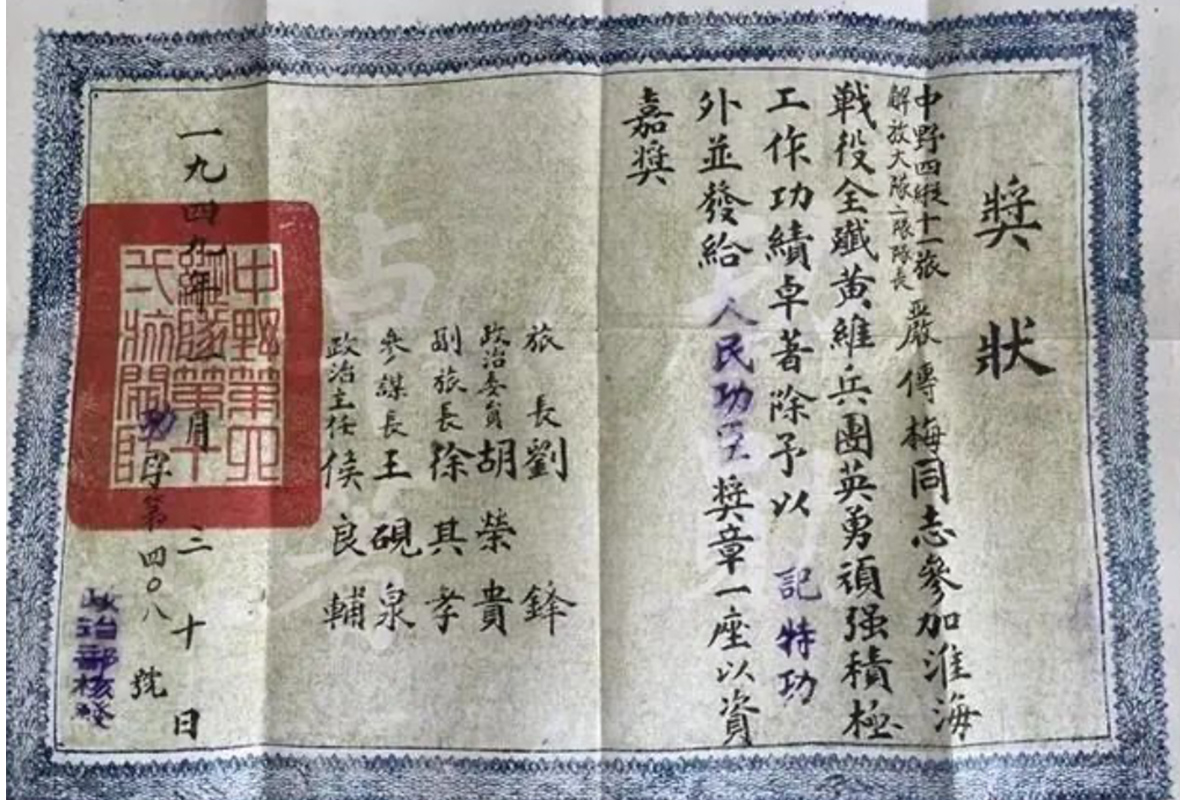 獎狀
中野四縱十一旅
解放大隊一隊隊長
嚴傳梅同志參加淮海
戰役全殲黃維兵團英勇頑强積極
工作功績卓著除予以記特功
外並發給人民功臣獎章一座以資
嘉獎
旅長劉鋒
政治委員胡榮貴
副旅長徐其孝
參謀長王硯泉
政治主任侯良輔
一九四九年月二十日
功字第四〇八號
政治部核發
中野第四
縱隊第十
弌旅關防